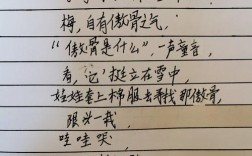 梅，自有傲骨之气，
“傲骨是什么”，一声童音，
看，它挺立在雪中，
娃娃套上棉服去寻找那傲骨，
跟头一栽，
哇哇哭，